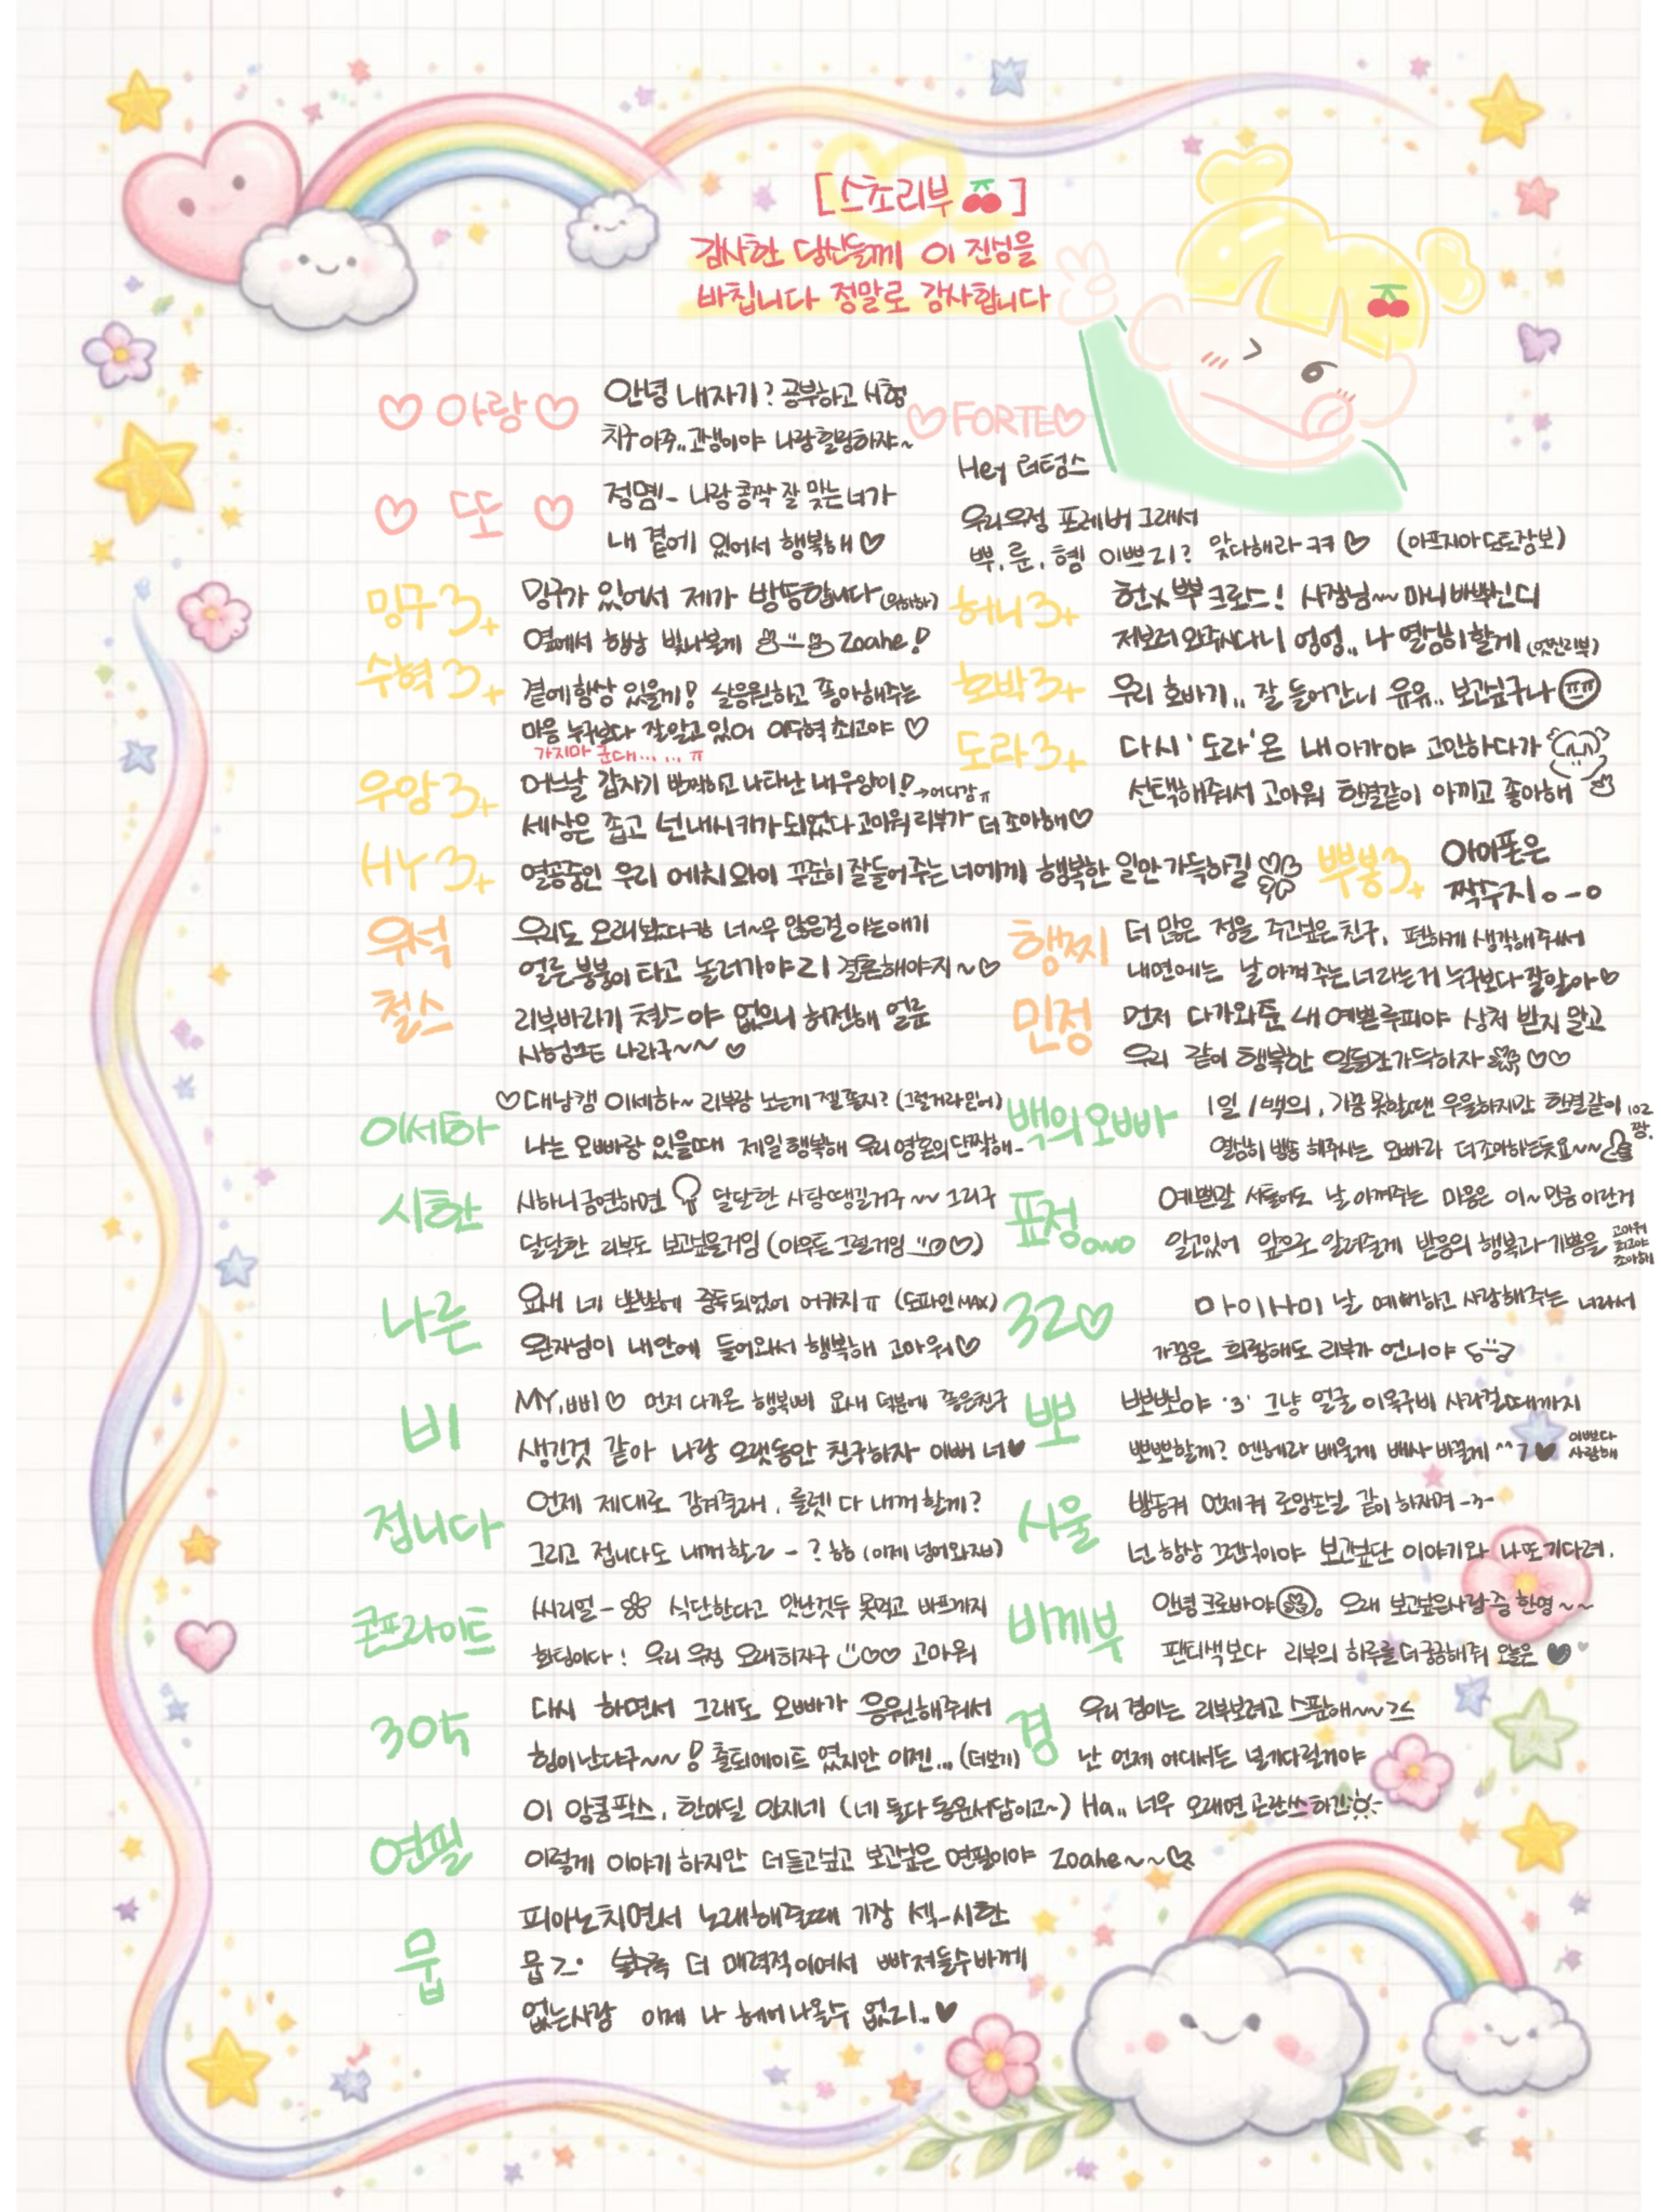 [스초리부]
감사한 당신들께 이 진심을
바칩니다 정말로 감사합니다
♡아랑♡
안녕 내자기? 공부하고 시험
치구 아주.. 고생이야 나랑힐링하쟈~
♡또♡
정몀!- 나랑 쿵짝 잘 맞는 너가
내 곁에 있어서 행복해♡
♡FORTE♡
Hey 러텀스
우리우정 포레버 그래서
뿌, 룬, 혬 이쁘리? 맞다해라 ㅋㅋ♡ (아프지마 도토잠보)
밍구3+
밍구가 있어서 제가 방똥합니다
옆에서 항상 빛나볼게 Zoahe!
허니3+
헌x뿌 크로스! 사장님~~ 마니바쁘신디
저보러 와주시다니 엉엉.. 나 열심히할게
수혁3+
곁에항상 있을께! 날응원하고 좋아해주는
마음 누구보다 잘알고있어 이수혁 최고야♡
가지마 군대...... ㅠ
호박3+
우리 호바기.. 잘 들어간니 유유.. 보고싶구나
도라3+
다시 '도라'온 내 아가야 고민하다가
선택해줘서 고마워 한결같이 아끼고 좋아해
우앙3+
어느날 갑자기 번쩍하고 나타난 내우앙이! →어디감ㅠ
세상은 좁고 넌내시키가되었다 고마워 리부가 더 조아해♡
HY3+
열공중인 우리 에치와이 꾸준히 잘들어주는 너에게 행복한 일만 가득하길
뿌붕3+
아이폰은
짝수지o-o
우석
우리도 오래봤다캉 너~무 많은걸 아는애기
얼른 붕붕이 타고 놀러가야리 결혼해야지~♡
행찌
더 많은 정을 주고싶은 친구, 편하게 생각해주써
내면에는 날 아껴주는너라는거 누구보다 잘알아♡
철스
리부바라기 철스야 없으니 허전해 얼른
시험끝 나라구~~♡
민정
먼저 다가와준 내 예쁜루피야 상처 받지 말고
우리 같이 행복한 일들만가득하자 ♡♡
이세하
♡대남캠 이세하~ 리부랑 노는게 젤좋지? (그럴거라믿어)
나는 오빠랑 있을때 제일행복해 우리 영혼의단짝해-
백의오빠
1일 1백의, 가끔 못할땐 우울하지만 한결같이 102
짱.
열심히 방송 해주시는 오빠라 더조아하는듯요~~
시한
시하니금연하면 달달한 사탕땡길거구~~ 그리구
달달한 리부도 보고싶을거임 (아무튼그럴거임 ♡)
표정
예쁜말 서툴어도 날 아껴주는 마음은 이~만큼 이란거
알고있어 앞으로 알려줄게 반응의 행복과 기쁨을 고마워
최고야
조아해
나룬
요새 네 뽀뽀에 중독되었어 어카지ㅠ (도파민MAX)
왕자님이 내안에 들어와서 행복해 고마워♡
32♡
마이사미 날 예뻐하고 사랑해주는 너라서
가끔은 희황해도 리부가 언니야
비
MY,삐♡ 먼저 다가온 행복삐 요새 덕분에 좋은친구
생긴것 같아 나랑 오랫동안 친구하자 이뻐 너♥
뽀
뽀뽀야 '3' 그냥 얼굴 이목구비 사라질때까지
뽀뽀할게? 멘헤라 배울게 배사 바꿀게 ^^7♥ 이쁘다
사랑해
접니다
언제 제대로 감겨줄래, 룰렛 다 내꺼할게?
그리고 접니다도 내꺼할고-? 핳 (이제 넘어와줘)
시울
방송켜 언제켜 로망손실 같이 하자며 -3-
넌 항상 그런식이야 보고싶단 이야기와 나또기다려.
콘프라이트
씨리얼- 식단한다고 맛난것두 못먹고 바프까지
화팅이다! 우리 우정 오래하자구 ♡♡ 고마워
바께부
안녕 크로바야, 오래 보고싶은사람중 한명~~
팬티색보다 리부의 하루를 더궁금해줘 오늘은
3억
다시 하면서 그래도 오빠가 응원해줘서
힘이난다구~~! 출퇴메이트 였지만 이젠... (더보기)
경
우리 경이는 리부보려고 스푼해~~><
난 언제 어디서든 널기다릴거야
연필
이 앙큼팍스, 한마딜 안지네 (네 둘다 동문서답이고~) Ha.. 너무 오래면 곤란쓰하긴
이렇게 이야기 하지만 더듣고싶고 보고싶은 연필이야 Zoahe~~♡
뭅
피아노치면서 노래해줄때 가장 섹-시한
뭅ㄱ. 볼수록 더 매력적이여서 빠져들수바께
없는사람 이제 나 헤어나올수 없리..♥